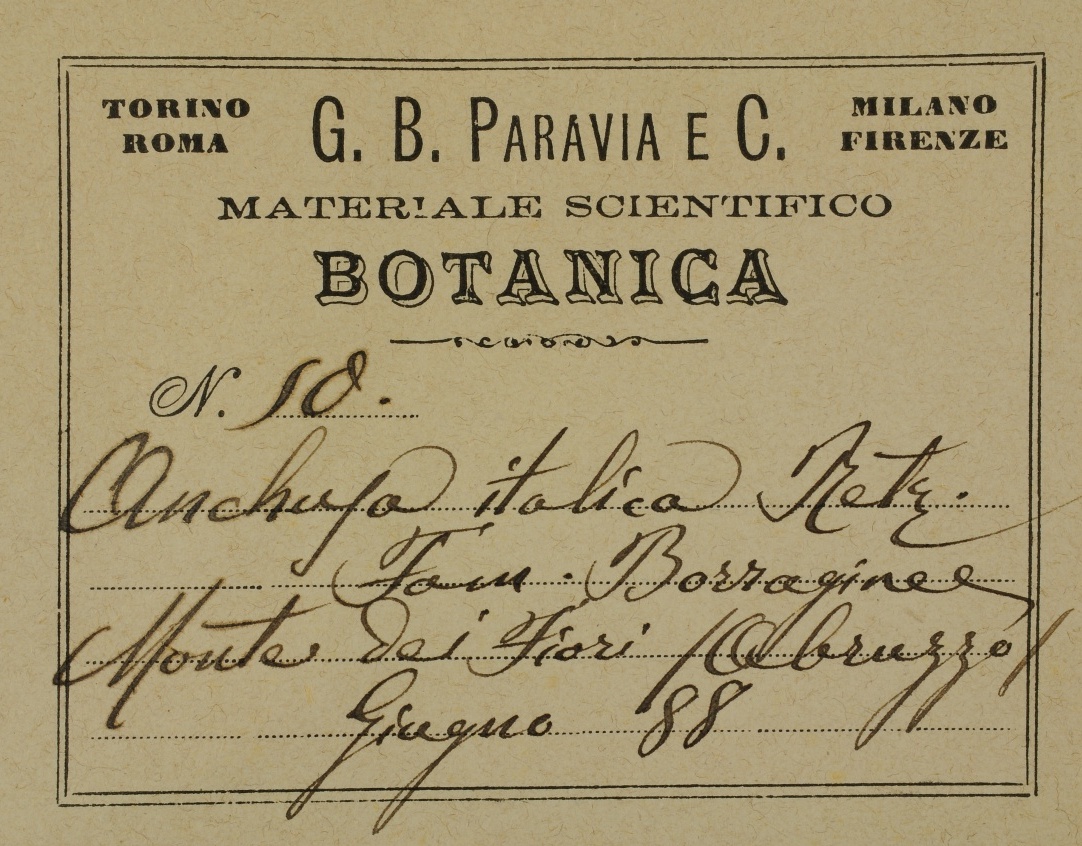 TORINO ROMA G. B. PARAVIA E C. MILANO FIRENZE
MATERIALE SCIENTIFICO
BOTANICA
N. 10.
Anchusa italica Retz.
Fam. Borraginee
Monte dei Fiori (Abruzzo)
Giugno 88